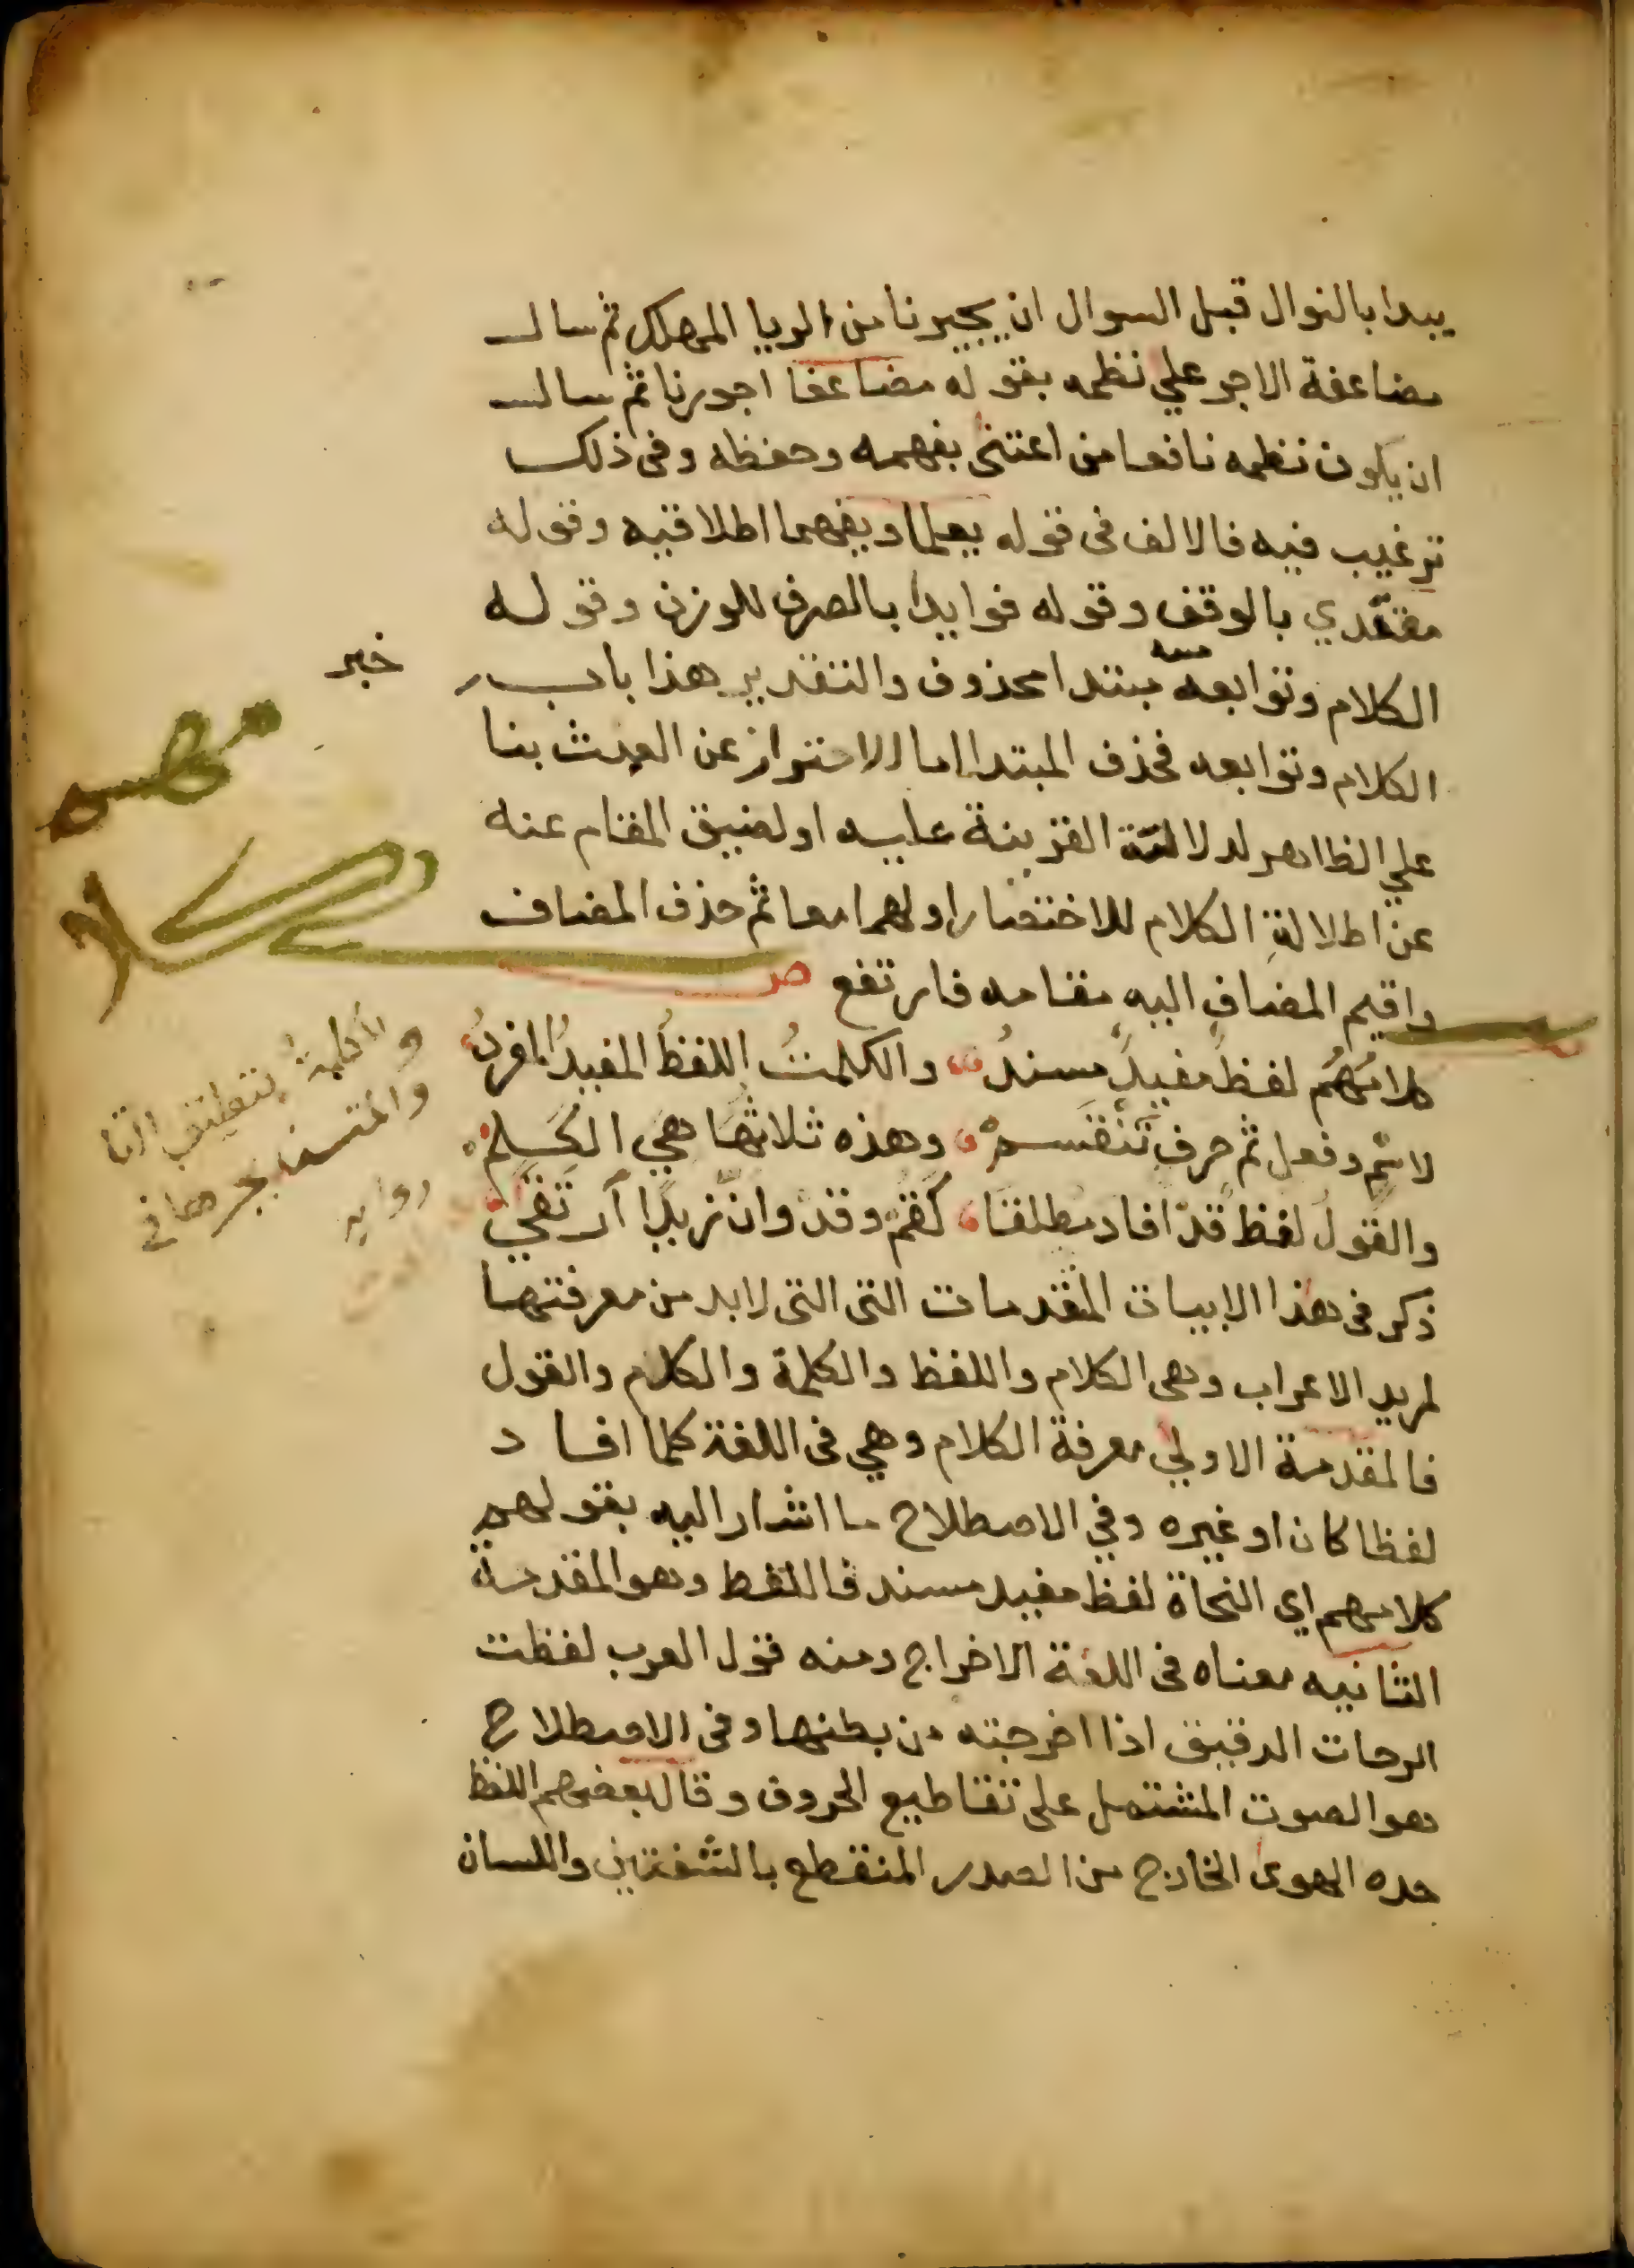 يبدا بالنوال قبل السوال ان يجيرنا من الريا المهلك ثم سال
مضاعفة الاجر علي نظمه بقوله مضاعفا اجورنا ثم سال
ان يكون نظمه نافعا من اعتنى بفهمه وحفظه وفى ذلك
ترغيب فيه فالالف فى قوله يعلما ويفهما اطلاقيه وقوله
مقتدي بالوقف وقوله فوايدا بالصرف للوزن وقوله
الكلام وتوابعه مبتدا محذوف والتقدير هذا باب
خبر
الكلام وتوابعه فحذف المبتدا اما الاحتراز عن العبث بنا
علي الظاهر لدلالة القرينة عليه او لضيق المقام عنه
عن اطلالة الكلام للاختصار او لهما معا ثم حذف المضاف
واقيم المضاف اليه مقامه فارتفع ص
كلامهم لفظ مفيد مسند والكلمت اللفظ المفيد المفرد
لاسم وفعل ثم حرف تنقسم وهذه ثلاثها هي الكلم
والقول لفظ قد افاد مطلقا كقم وقد وان زيدا ارتقي
والكلمة
والمسند
رواية
ذكر فى هذا الابيات المقدمات التى التى لابد من معرفتها
لمريد الاعراب وهى الكلام واللفظ والكلمة والكلام والقول
فالمقدمة الاولي معرفة الكلام وهي فى اللغة كلما افاد
لفظا كان او غيره وفي الاصطلاح ما اشار اليه بقولهم
كلامهم اي النحاة لفظ مفيد مسند فاللفظ وهو المقدمة
الثانيه معناه فى اللغة الاخراج ومنه قول العرب لفظت
الرحات الدقيق اذا اخرجته من بطنها وفى الاصطلاح
هو الصوت المشتمل على تقاطيع الحروف وقال بعضهم اللفظ
حده الهوى الخارج من الصدر المنقطع بالشفتين واللسان